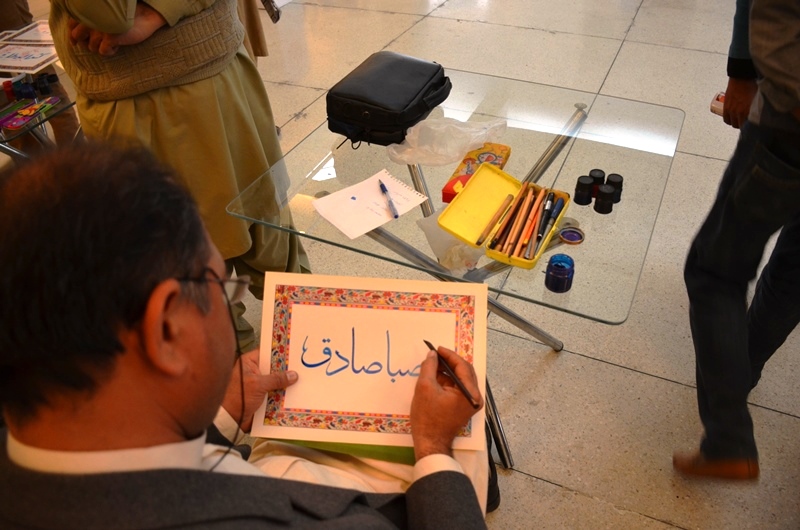 صبا صادق